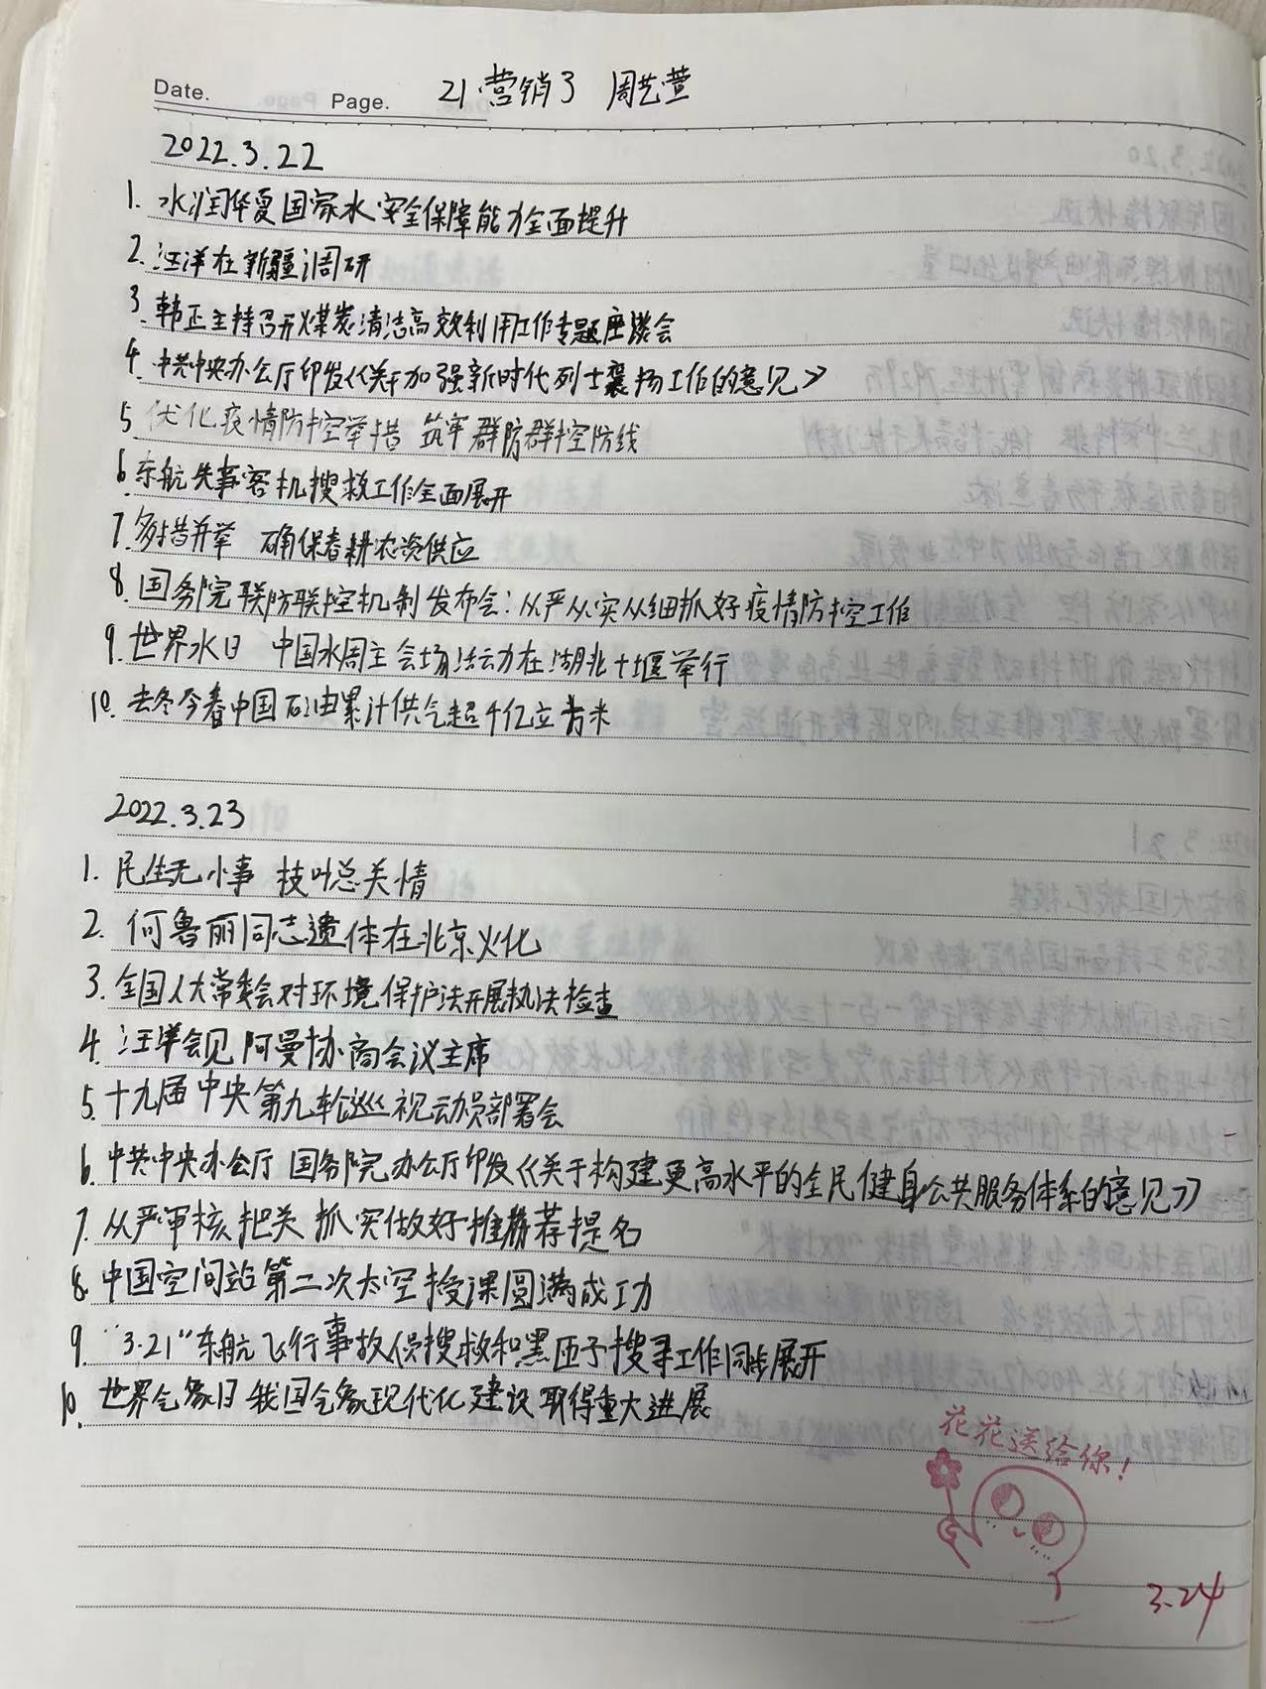 Date.
Page.
21.营销3 周艺萱
2022.3.22
1. 水润华夏国家水安全保障能力全面提升
2. 汪洋在新疆调研
3. 韩正主持召开煤炭清洁高效利用工作专题座谈会
4. 中共中央办公厅印发《关于加强新时代烈士褒扬工作的意见》
5 优化疫情防控举措 筑牢群防群控防线
6. 东航失事客机搜救工作全面展开
7. 多措并举 确保春耕农资供应
8. 国务院联防联控机制发布会:从严从实从细抓好疫情防控工作
9. 世界水日 中国水周主会场活动在湖北十堰举行
10. 去冬今春中国石油累计供气超千亿立方米
2022.3.23
1. 民生无小事 枝叶总关情
2. 何鲁丽同志遗体在北京火化
3. 全国人大常委会对环境保护法开展执法检查
4. 汪洋会见阿曼协商会议主席
5. 十九届中央第九轮巡视动员部署会
6. 中共中央办公厅 国务院办公厅印发《关于构建更高水平的全民健身公共服务体系的意见》
7. 从严审核把关 抓实做好推荐提名
8. 中国空间站第二次太空授课圆满成功
9. "3.21"东航飞行事故人员搜救和黑匣子搜寻工作同步展开
10. 世界气象日 我国气象现代化建设取得重大进展
花花送给你!
3.24